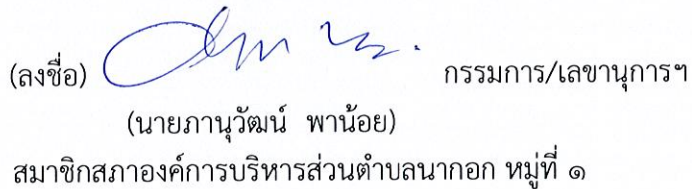 (ลงชื่อ) กรรมการ/เลขานุการฯ
(นายภานุวัฒน์ พาน้อย)
สมาชิกสภาองค์การบริหารส่วนตำบลนากอก หมู่ที่ ๑